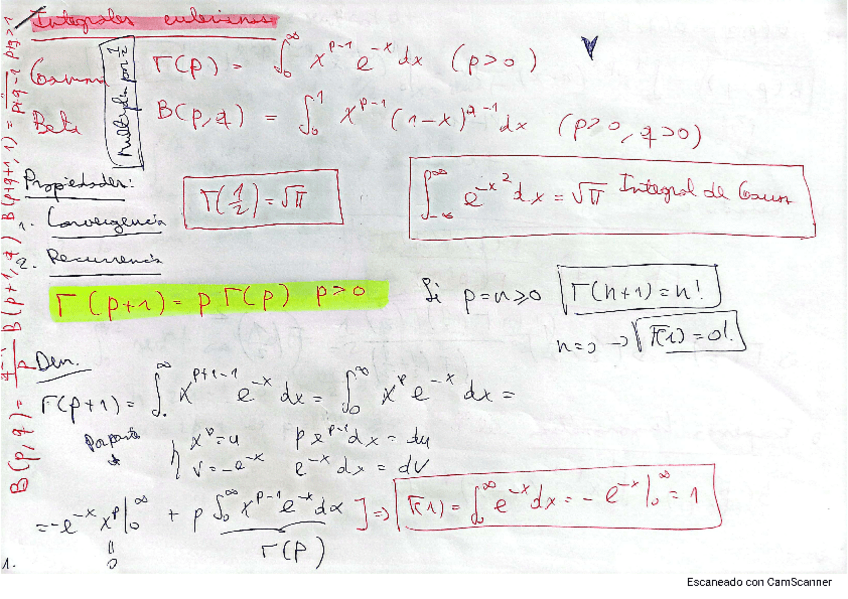 Integrales eulerianas
Gamma Γ(p) = ∫₀^∞ x^{p-1} e^{-x} dx (p>0)
Beta B(p,q) = ∫₀^1 x^{p-1} (1-x)^{q-1} dx (p>0, q>0)
Multiplia por ½
Propiedades:
Γ(1/2) = √π
∫_{-∞}^∞ e^{-x²} dx = √π Integral de Gauss
1. Convergencia
2. Recurrencia
Γ(p+1) = p Γ(p) p>0
Si p=n≥0 Γ(n+1)=n!
n=0 → Γ(1)=0!
Dem.
Γ(p+1) = ∫₀^∞ x^{p+1-1} e^{-x} dx = ∫₀^∞ x^p e^{-x} dx =
Por partes
x^p = u p x^{p-1} dx = du
v = -e^{-x} e^{-x} dx = dv
= -e^{-x} x^p |₀^∞ + p ∫₀^∞ x^{p-1} e^{-x} dx ] ⇒ Γ(1) = ∫₀^∞ e^{-x} dx = -e^{-x} |₀^∞ = 1
= 0
Γ(p)
1.
Escaneado con CamScanner